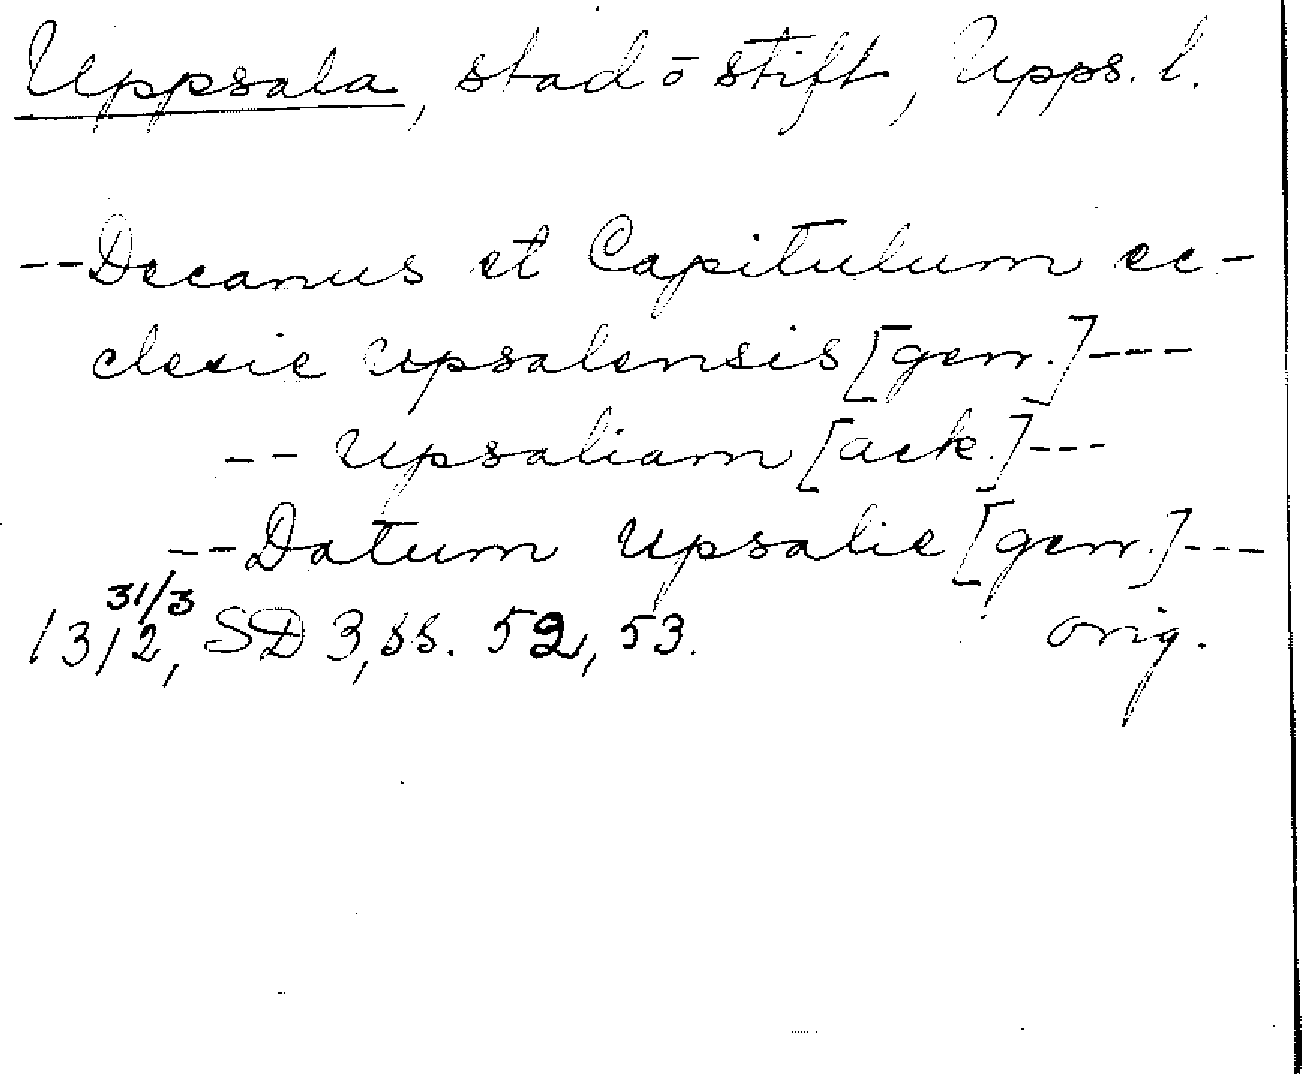 Uppsala, stad o stift, Upps. l.
--Decanus et Capitulum ec-
clesie upsalensis [gen.]---
-- Upsaliam [ack.]---
--Datum Upsalie [gen.]---
31/3
1312, SD 3, ss. 52, 53. orig.